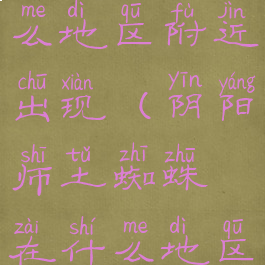 me dì qū fù jìn
么地区附近
chū xiàn yīn yáng
出现（阴阳
shī tǔ zhī zhū
师土蜘蛛
zài shí me dì qū
在什么地区